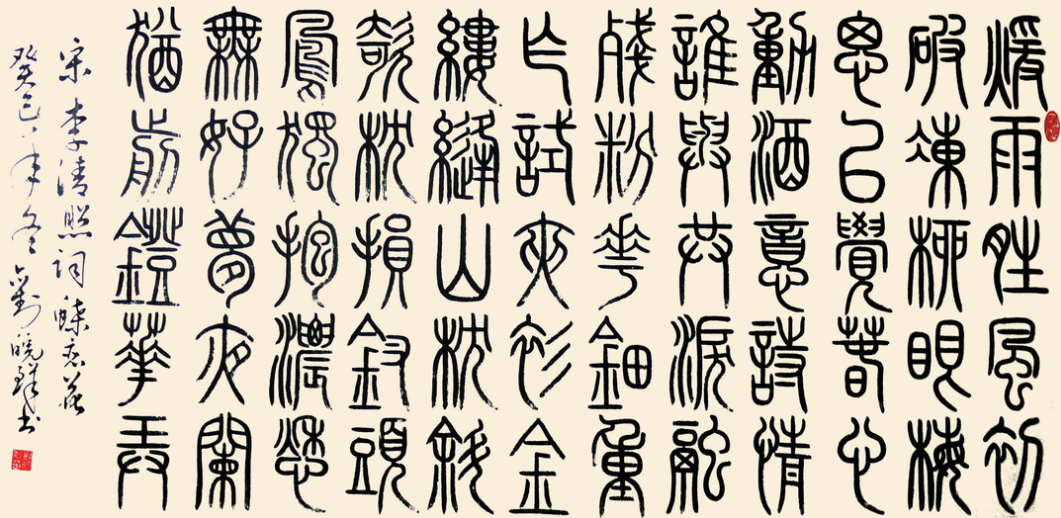 煖雨晴風初
破凍柳眼梅
思已覺春心
動酒意詩情
誰與共淚融
殘粉花鈿重
乍試夾衫金
縷縫山枕斜
欹枕損釵頭
鳳獨抱濃愁
無好夢夜闌
猶剪鐙華弄
宋李清照詞蝶恋花
癸巳年冬劉曉祥书